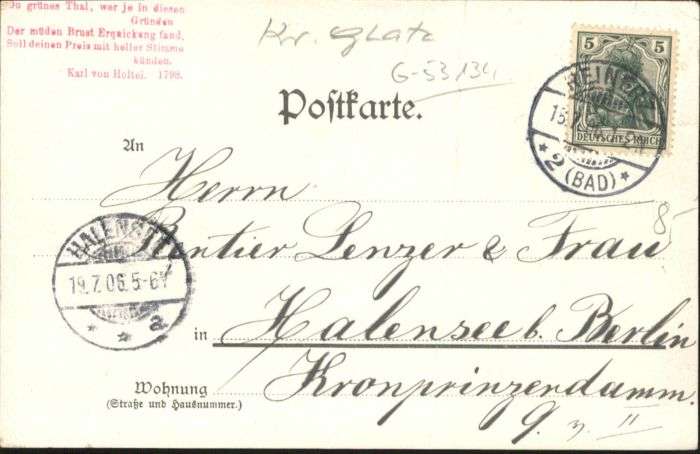 Du grünes Thal, wer je in diesen
Gründen
Der müden Brust Erquickung fand,
Soll deinen Preis mit heller Stimme
künden.
Karl von Holtei. 1798.
Kr. Glatz
G-53134
5 5
DEUTSCHES REICH
REINERZ
15.7.
* 2 (BAD) *
Postkarte.
An
Herrn
Rentier Lenzer & Frau
8,-
HALENSEE
19.7.06.5-6N
* * a
in Halensee b. Berlin
Wohnung Kronprinzendamm.
(Straße und Hausnummer.)
9.
II